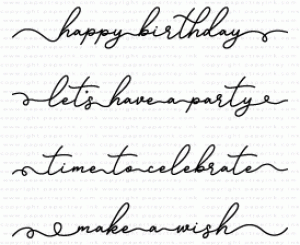 happy birthday
let's have a party
time to celebrate
make a wish